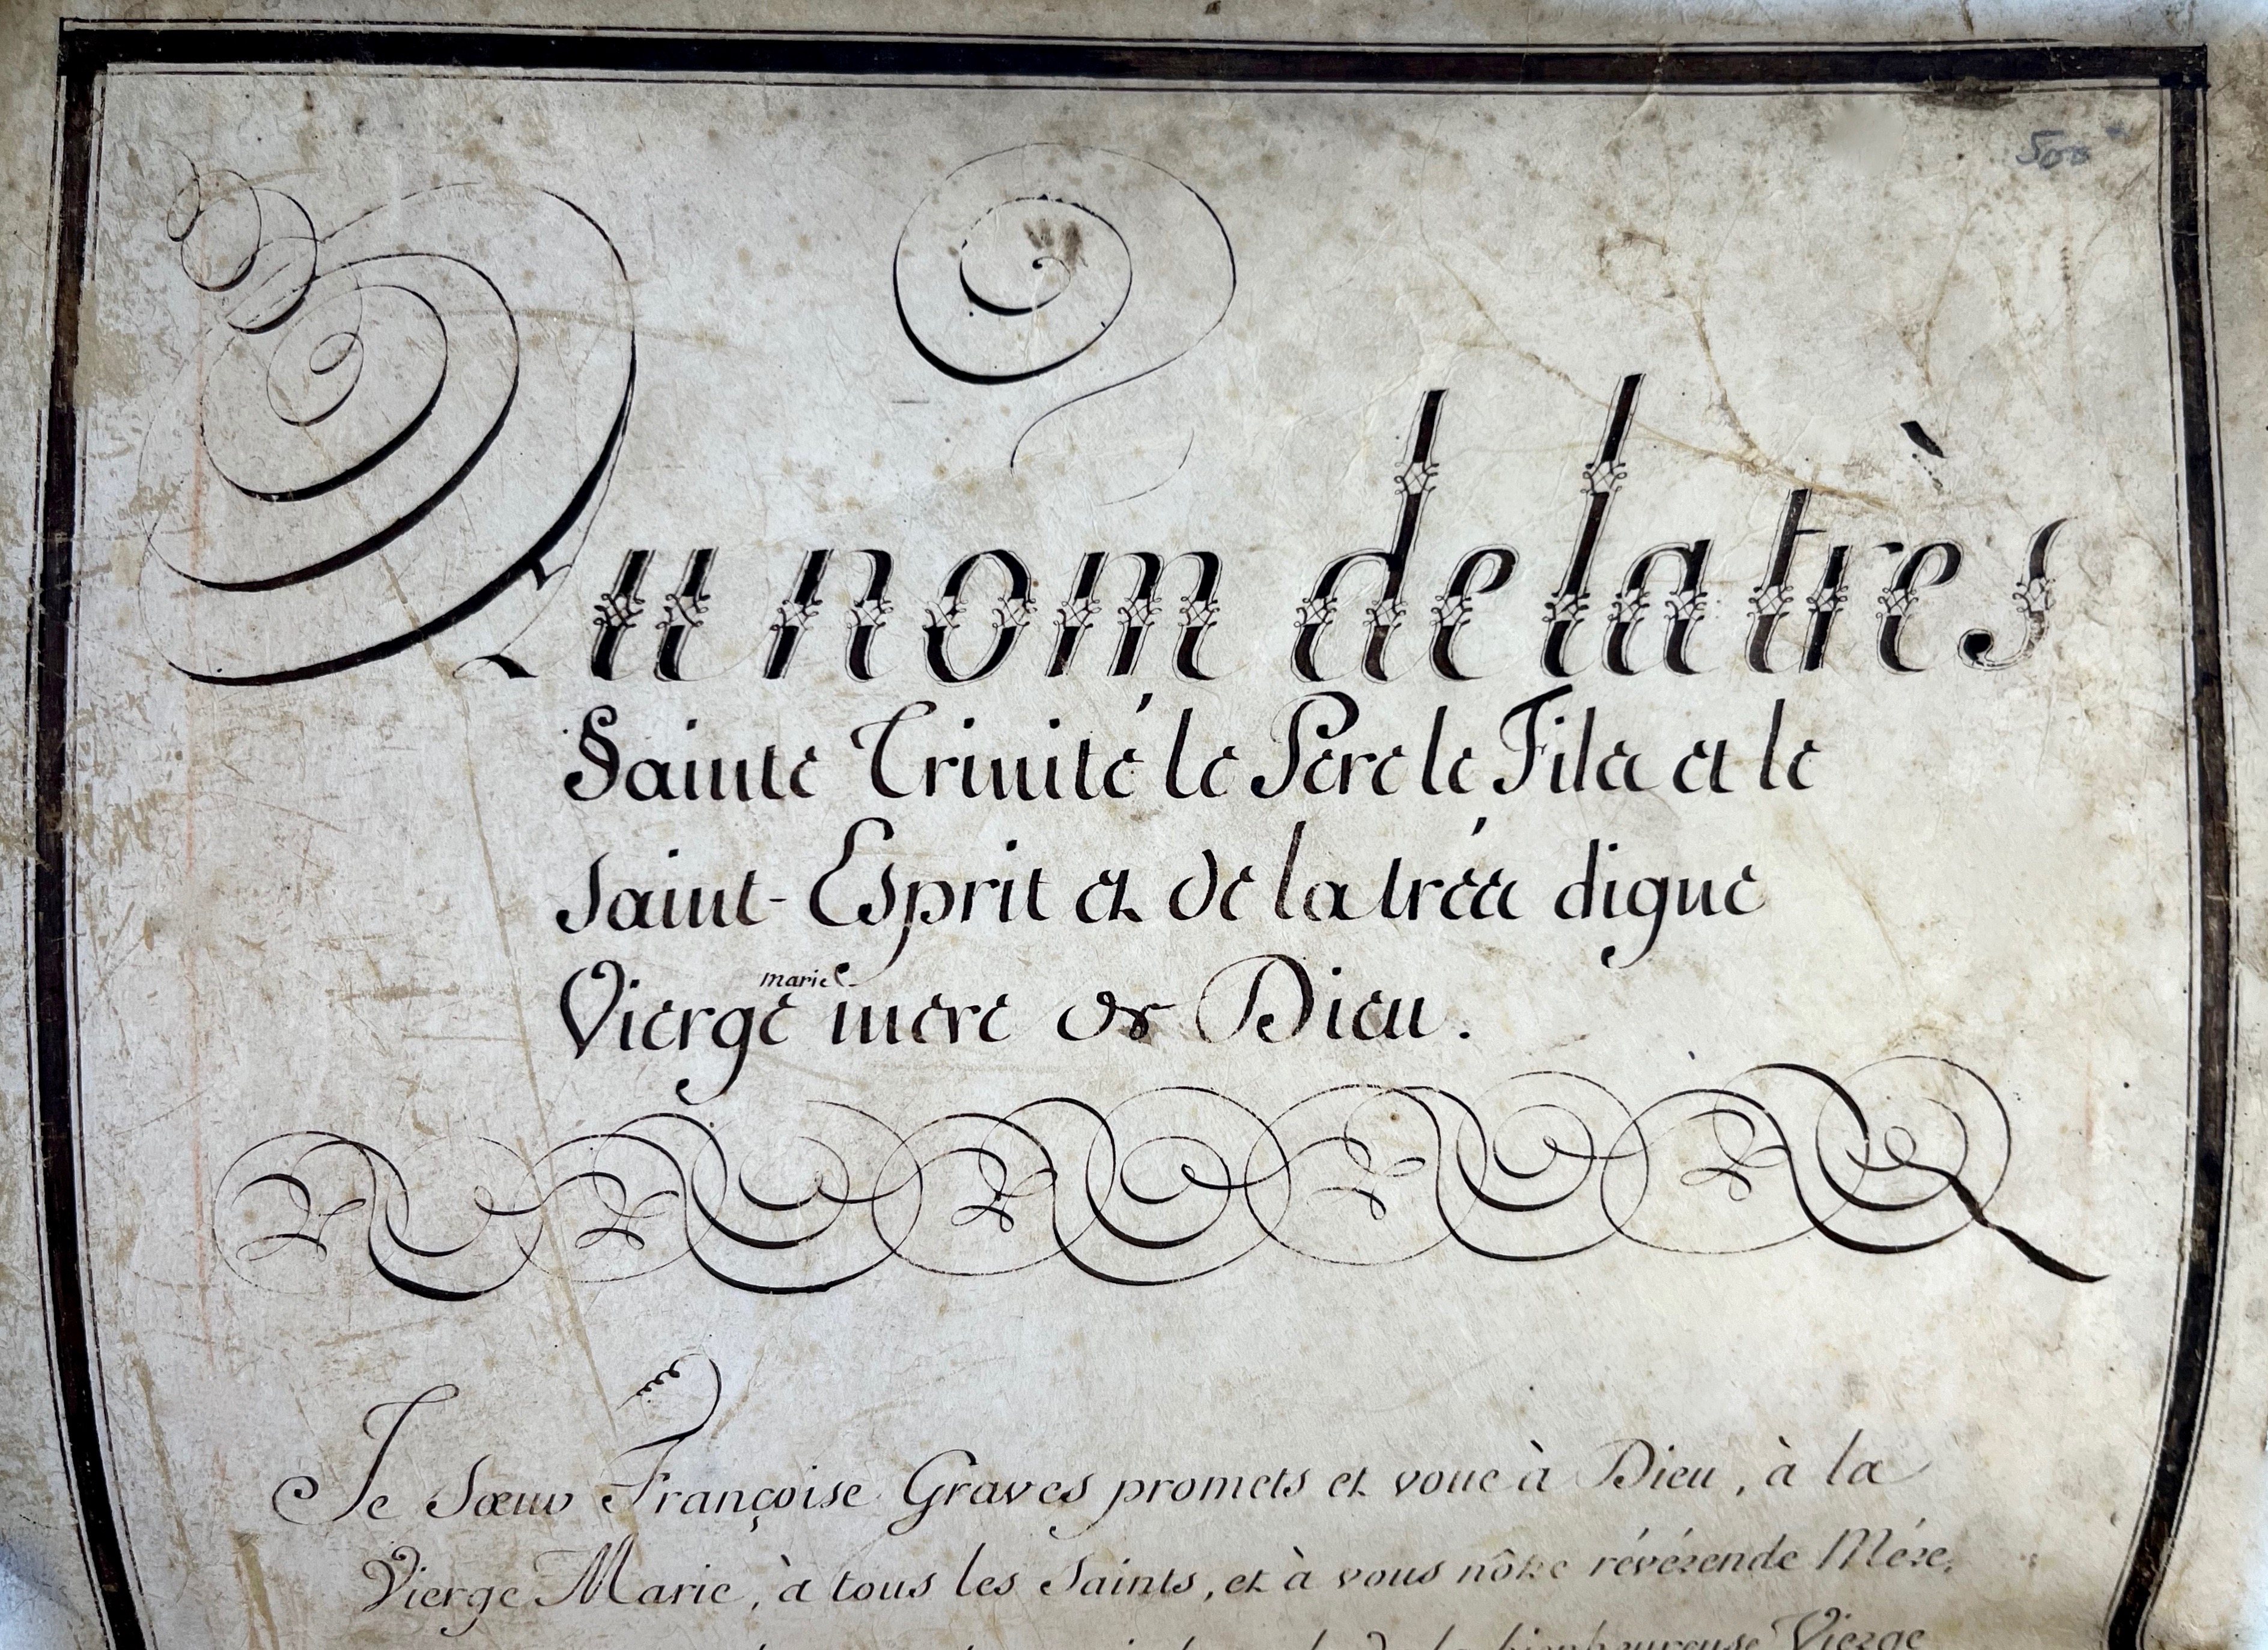 500
Au nom de la très
Sainte Trinité le Pere le Fils et le
saint-Esprit et de la trés digne
marie
Vierge mere de Dieu.
Je Sœur Françoise Graves promets et voue à Dieu, à la
Vierge Marie, à tous les Saints, et à vous nôtre révérende Mére,
de la bienheureuse Vierge